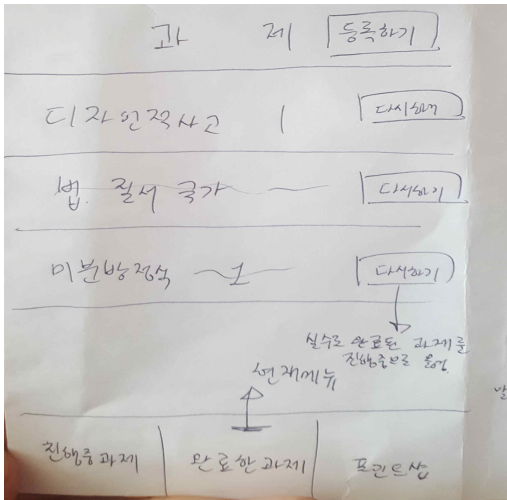 과 제 등록하기
디자인적사고 1 다시하기
법. 질서 국가 다시하기
미분방정식 1 다시하기
실수로 완료된 과제를
진행중으로 옮김
현재메뉴
진행중과제 완료한과제 프린트샵